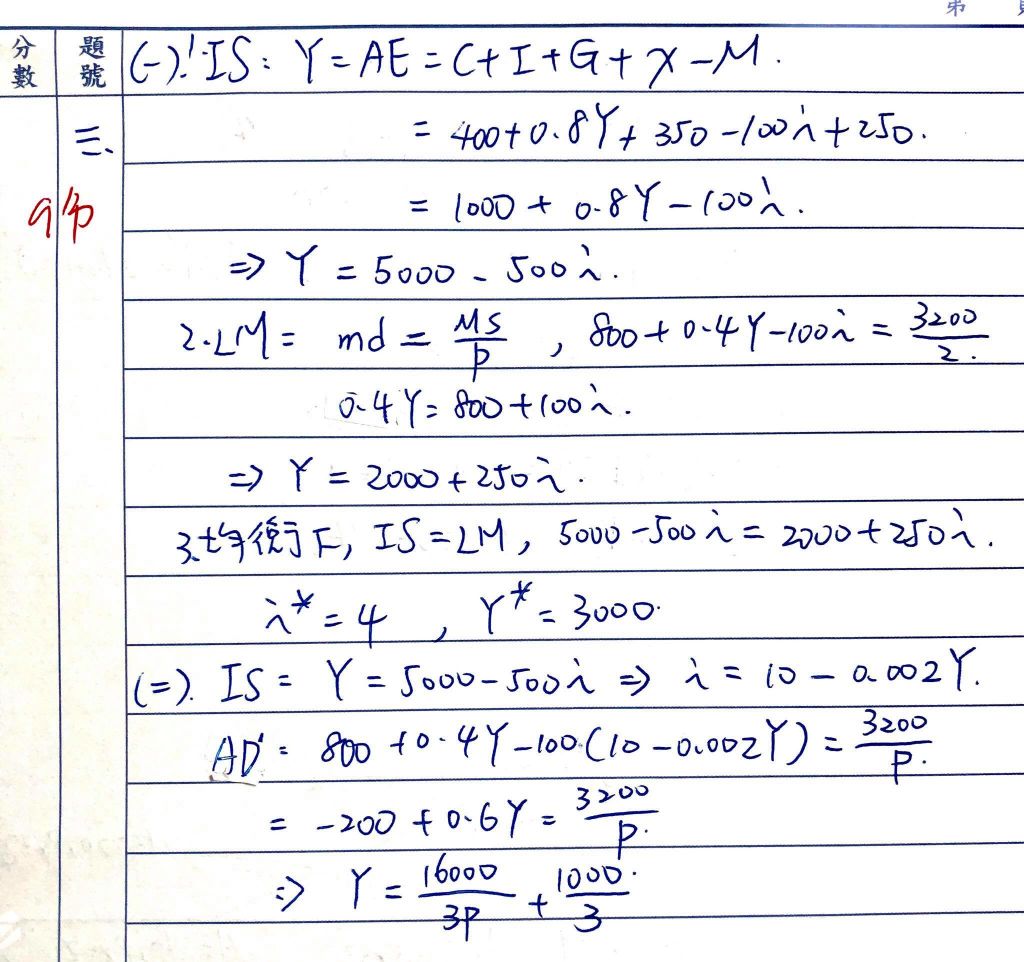 第
分數 題號 (一).1.IS: Y=AE=C+I+G+X-M.
三. =400+0.8Y+350-100i+250.
9分 =1000+0.8Y-100i.
⇒ Y=5000-500i.
2.LM= md=MS/P, 800+0.4Y-100i=3200/2.
0.4Y=800+100i.
⇒ Y=2000+250i.
3.均衡下, IS=LM, 5000-500i=2000+250i.
i*=4, Y*=3000.
(二). IS= Y=5000-500i ⇒ i=10-0.002Y.
AD: 800+0.4Y-100(10-0.002Y)=3200/P.
=-200+0.6Y=3200/P.
⇒ Y=16000/3P+1000/3.